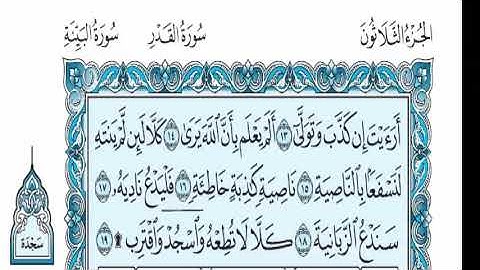 الجزء الثلاثون سورة القدر سورة البينة
أَرَءَيْتَ إِن كَذَّبَ وَتَوَلَّىٰٓ ١٣ أَلَمْ يَعْلَم بِأَنَّ ٱللَّهَ يَرَىٰ ١٤ كَلَّا لَئِن لَّمْ يَنتَهِ
لَنَسْفَعًۢا بِٱلنَّاصِيَةِ ١٥ نَاصِيَةٍ كَـٰذِبَةٍ خَاطِئَةٍ ١٦ فَلْيَدْعُ نَادِيَهُۥ ١٧
سَنَدْعُ ٱلزَّبَانِيَةَ ١٨ كَلَّا لَا تُطِعْهُ وَٱسْجُدْ وَٱقْتَرِب ۩ ١٩
سجدة